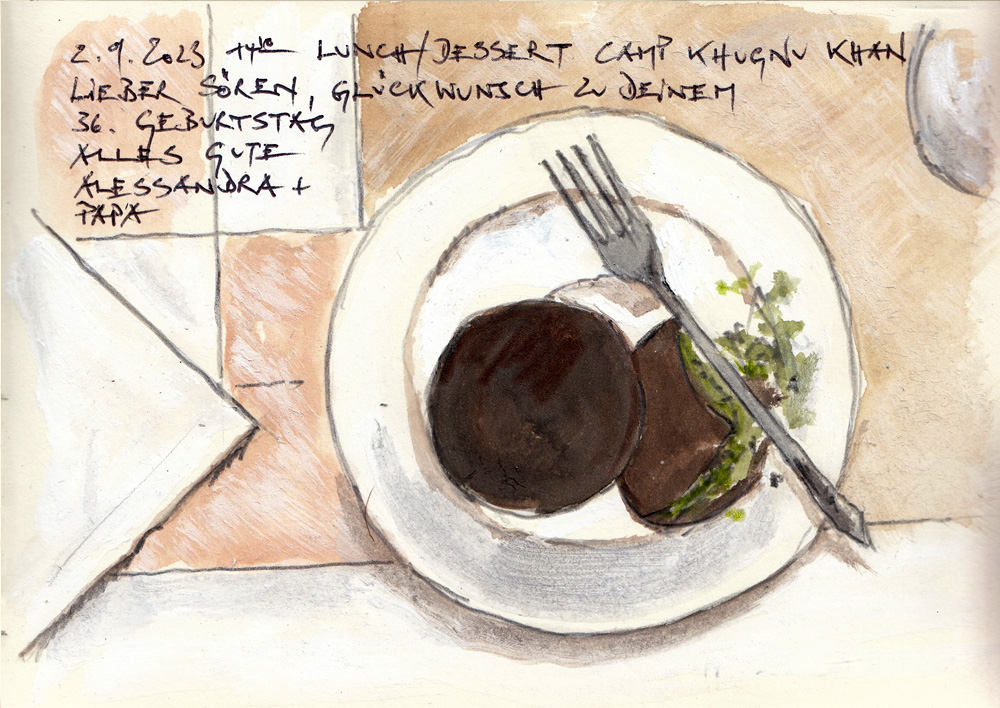 2.9.2023 14¹⁰ LUNCH/DESSERT CAMP KHUGNU KHAN
LIEBER SÖREN, GLÜCKWUNSCH ZU DEINEM
36. GEBURTSTAG
ALLES GUTE
ALESSANDRA +
PAPA